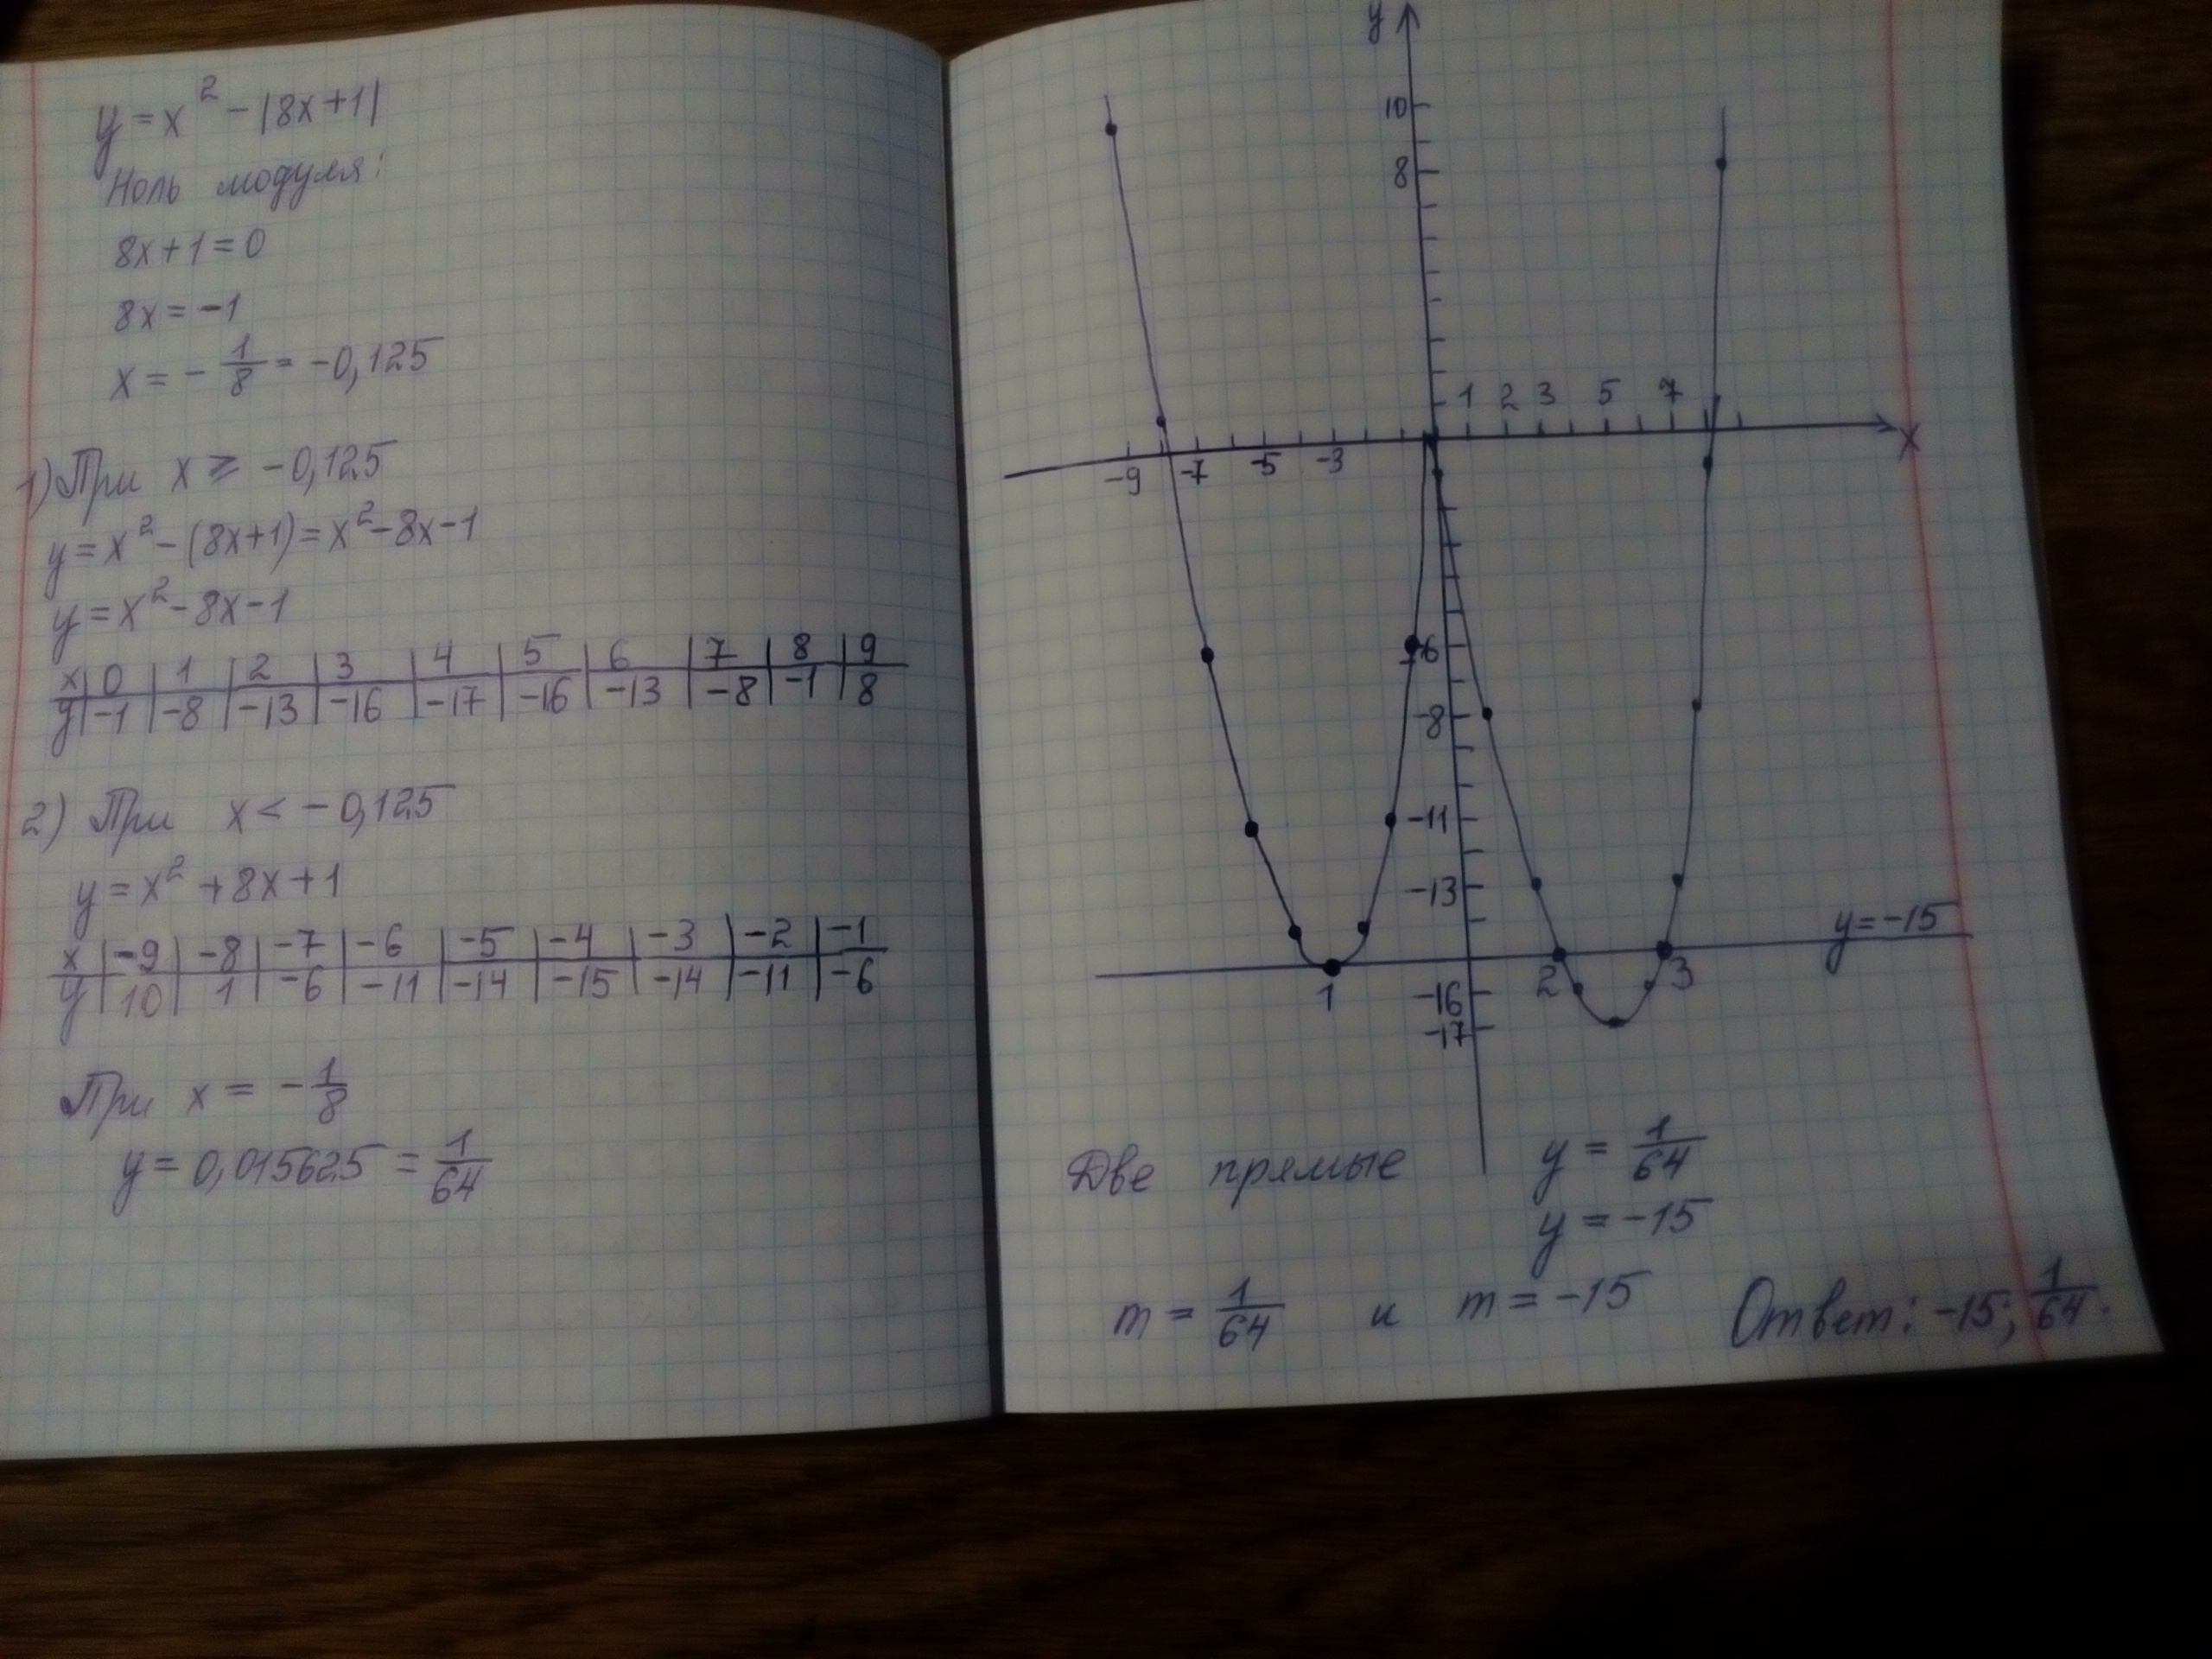 y = x² - |8x+1|
Ноль модуля:
8x+1=0
8x = -1
x = - 1/8 = -0,125
1) При x ⩾ -0,125
y = x² - (8x+1) = x² - 8x - 1
y = x² - 8x - 1
x | 0 | 1 | 2 | 3 | 4 | 5 | 6 | 7 | 8 | 9
y | -1 | -8 | -13 | -16 | -17 | -16 | -13 | -8 | -1 | 8
2) При x < -0,125
y = x² + 8x + 1
x | -9 | -8 | -7 | -6 | -5 | -4 | -3 | -2 | -1
y | 10 | 1 | -6 | -11 | -14 | -15 | -14 | -11 | -6
При x = - 1/8
y = 0,015625 = 1/64
y
10
8
1 2 3 5 7
x
-9 -7 -5 -3
-6
-8
-11
-13
y = -15
1 2 3
-16
-17
Две прямые y = 1/64
y = -15
m = 1/64 и m = -15 Ответ: -15; 1/64.